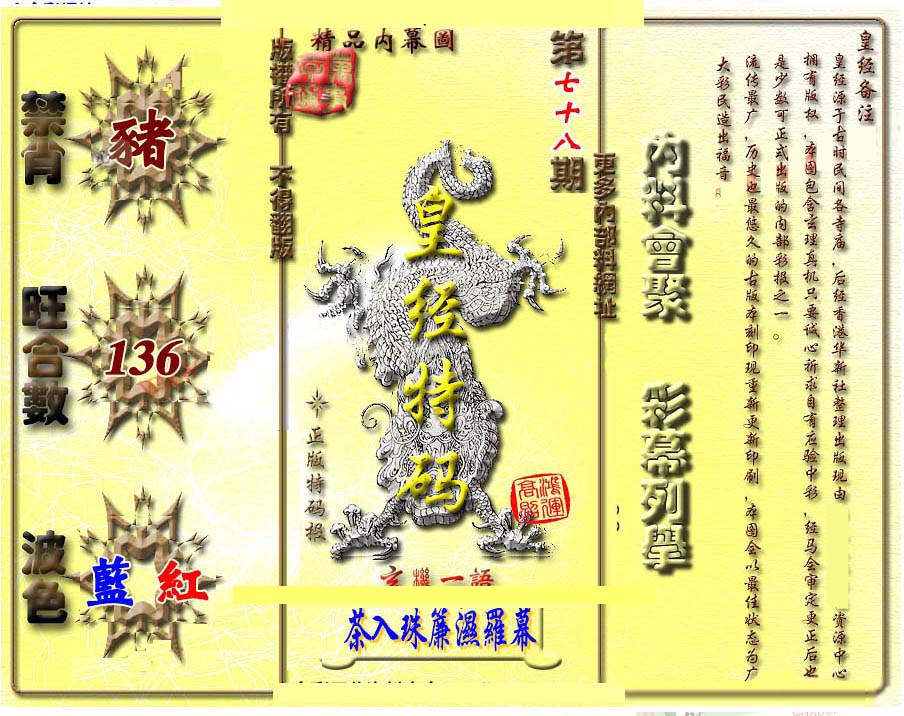 精品內幕圖
第七十八期
版權所有 不得翻版
更多內部料網址
禁肖
豬
旺合數
136
波色
藍 紅
皇经特码
正版特码报
鴻運高照
玄機一語
茶入珠簾濕羅幕
內料會聚
彩幕列舉
皇经备注
皇经源于古时民间各寺庙，后经香港华新社整理出版现由 资源中心
拥有版权，本图包含玄理真机只要诚心祈求自有应验中彩，经马会审定更正后也
是少数可正式出版的内部彩报之一。
流传最广，历史也最悠久的古版本刻印现重新更新印刷，本图会以最佳状态为广
大彩民造出福音